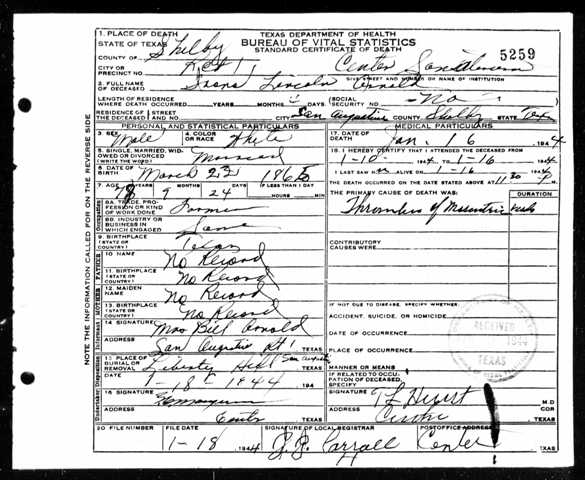 TEXAS DEPARTMENT OF HEALTH
BUREAU OF VITAL STATISTICS
STANDARD CERTIFICATE OF DEATH
5259
1. PLACE OF DEATH
STATE OF TEXAS
COUNTY OF Shelby
CITY OR PRECINCT NO.
Center
GIVE STREET AND NUMBER OR NAME OF INSTITUTION
2. FULL NAME OF DECEASED Lincoln Arnold
LENGTH OF RESIDENCE WHERE DEATH OCCURRED YEARS MONTHS
SOCIAL SECURITY NO. No
RESIDENCE OF THE DECEASED STREET NO. CITY San Augustine COUNTY Shelby STATE Tex
PERSONAL AND STATISTICAL PARTICULARS
3. SEX Male
4. COLOR OR RACE White
5. SINGLE, MARRIED, WIDOWED OR DIVORCED (WRITE THE WORD) Married
6. DATE OF BIRTH March 22 1865
7. AGE 78 YEARS 9 MONTHS 24 DAYS IF LESS THAN 1 DAY HOURS MIN.
8A. TRADE, PROFESSION OR KIND OF WORK DONE Farmer
8B. INDUSTRY OR BUSINESS IN WHICH ENGAGED Same
9. BIRTHPLACE (STATE OR COUNTRY) Texas
10. NAME No Record
11. BIRTHPLACE (STATE OR COUNTRY) No Record
12. MAIDEN NAME No Record
13. BIRTHPLACE (STATE OR COUNTRY) No Record
14. SIGNATURE Mrs Bill Arnold
ADDRESS San Augustine Rt 1 TEXAS
15. PLACE OF BURIAL OR REMOVAL Liberty Hill San Augustine TEXAS
DATE 1-18-1944 194
16. SIGNATURE
ADDRESS Center TEXAS
MEDICAL PARTICULARS
17. DATE OF DEATH Jan. 16 1944
18. I HEREBY CERTIFY THAT I ATTENDED THE DECEASED FROM
1-10- 1944 TO 1-16 1944
I LAST SAW ALIVE ON 1-16 1944
THE DEATH OCCURRED ON THE DATE STATED ABOVE AT 11:30 M.
THE PRIMARY CAUSE OF DEATH WAS: DURATION
Thrombus of Mesenteric
CONTRIBUTORY CAUSES WERE:
IF NOT DUE TO DISEASE, SPECIFY WHETHER:
ACCIDENT, SUICIDE, OR HOMICIDE
DATE OF OCCURRENCE
PLACE OF OCCURRENCE
MANNER OR MEANS
IF RELATED TO OCCUPATION OF DECEASED, SPECIFY
SIGNATURE M.D.
ADDRESS COR
TEXAS
RECEIVED
TEXAS
20. FILE NUMBER
FILE DATE 1-18 1944
SIGNATURE OF LOCAL REGISTRAR
POSTOFFICE ADDRESS Center TEXAS
NOTE THE INFORMATION CALLED FOR ON THE REVERSE SIDE